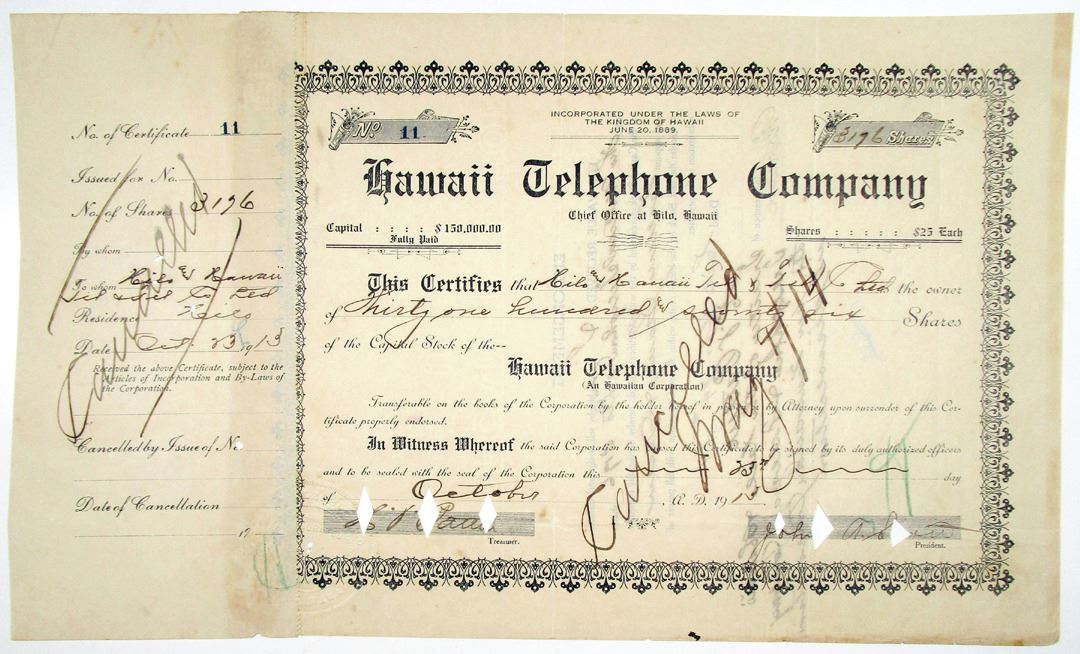 No. of Certificate 11
Issued for No.
No. of Shares 3176
By whom
To whom Hilo & Hawaii
Tel & Tel Co Ltd
Residence Hilo
Date Oct. 23 1913
Received the above Certificate, subject to the
Articles of Incorporation and By-Laws of
the Corporation.
Cancelled by Issue of No
Date of Cancellation
19
Cancelled
No. 11
INCORPORATED UNDER THE LAWS OF
THE KINGDOM OF HAWAII
JUNE 20, 1889.
3176 Shares
Hawaii Telephone Company
Chief Office at Hilo, Hawaii
Capital : : : : $150,000.00
Fully Paid
Shares : : : : : $25 Each
This Certifies that Hilo and Hawaii Tel & Tel Co Ltd is the owner
of Thirty one hundred & seventy six Shares
of the Capital Stock of the--
Hawaii Telephone Company
(An Hawaiian Corporation)
Transferable on the books of the Corporation by the holder hereof in person or by Attorney upon surrender of this Cer-
tificate properly endorsed.
In Witness Whereof the said Corporation has caused this Certificate to be signed by its duly authorized officers
and to be sealed with the seal of the Corporation this 23rd day
of October, A. D. 191
Treasurer.
John A. Scott
President.
Cancelled